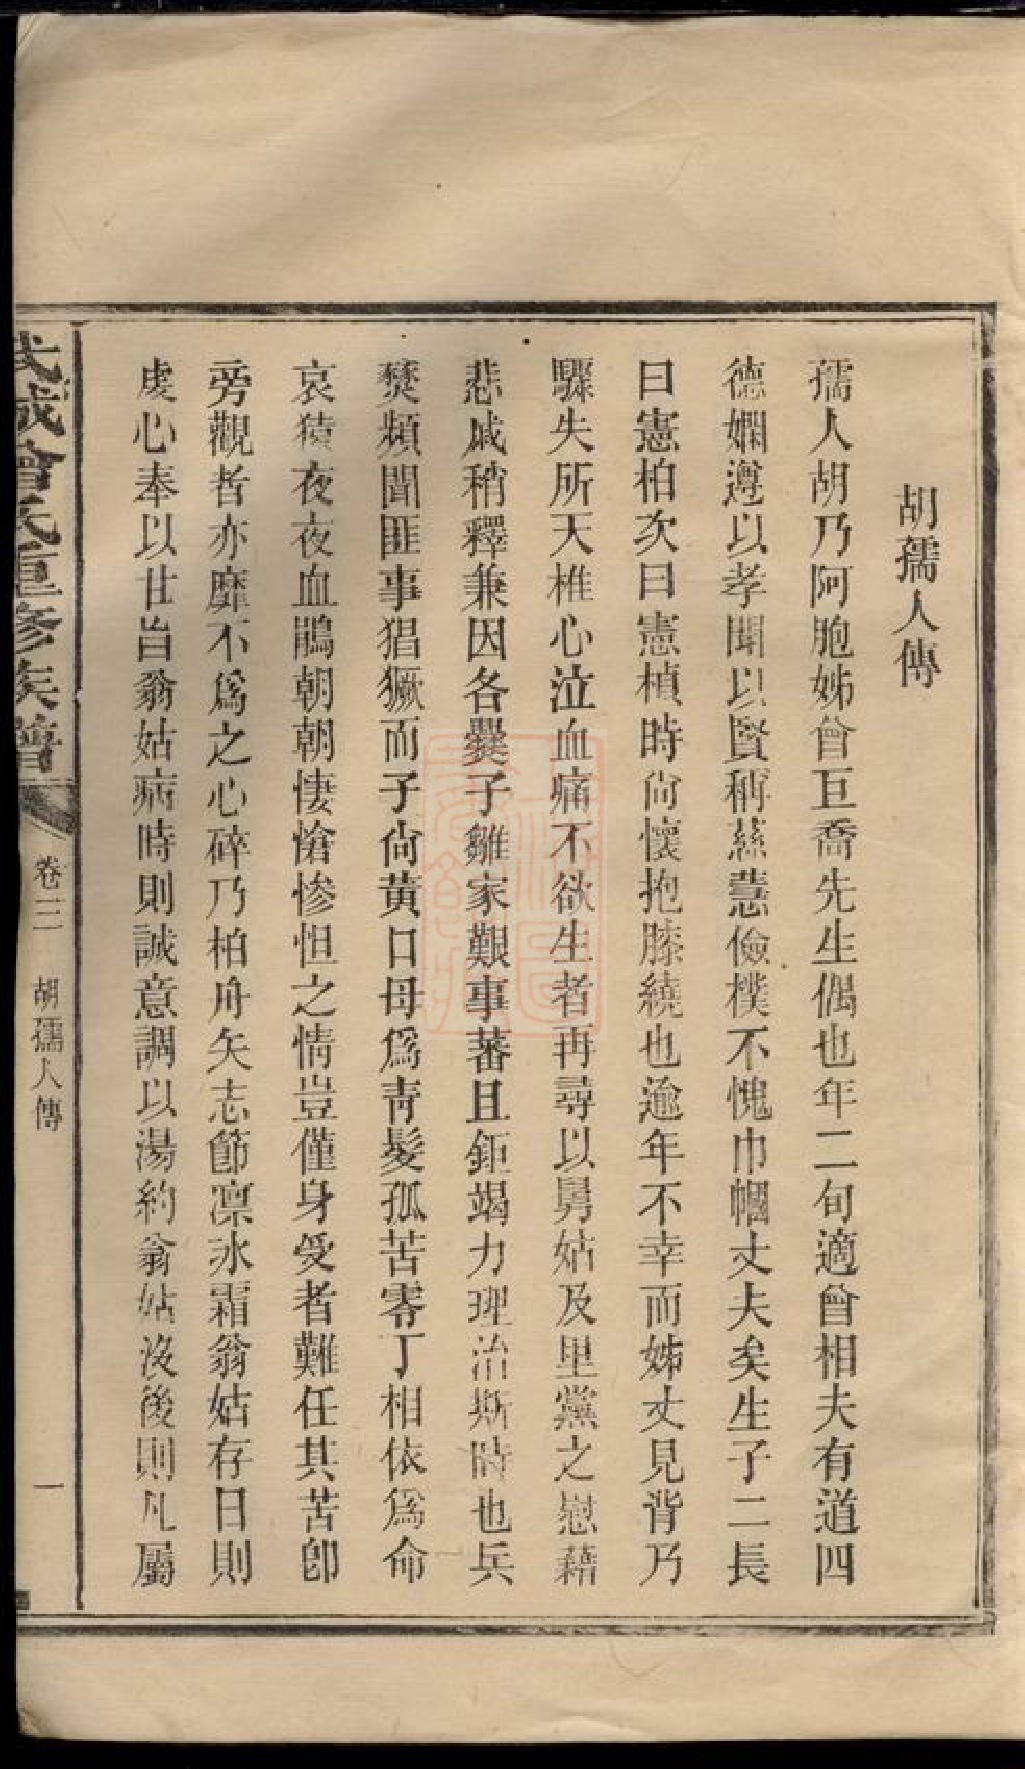 胡孺人傳
孺人胡乃阿胞姊曾巨喬先生偶也年二旬適曾相夫有道四
德嫻遵以孝聞以賢稱慈慧儉樸不愧巾幗丈夫矣生子二長
曰憲柏次曰憲楨時尙懷抱膝繞也逾年不幸而姊丈見背乃
驟失所天椎心泣血痛不欲生者再尋以舅姑及里黨之慰藉
悲戚稍釋兼因各爨子雛家艱事蕃且鉅竭力理治斯時也兵
燹頻聞匪事猖獗而子尙黃口母爲靑髮孤苦零丁相依爲命
哀猿夜夜血鵑朝朝悽愴慘怛之情豈僅身受者難任其苦卽
旁觀者亦靡不爲之心碎乃柏舟矢志節凛冰霜翁姑存日則
虔心奉以甘旨翁姑病時則誠意調以湯約翁姑沒後則凡屬
武城曾氏重修族譜 卷三 胡孺人傳 一